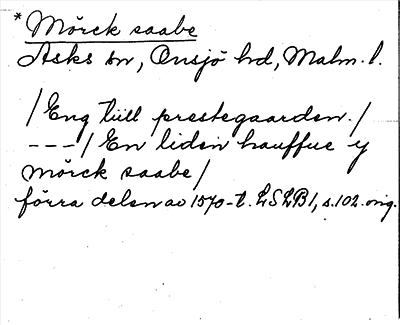 * Mörck saabe
Asks sn, Onsjö hd, Malm. l.
/Eng till prestegaarden./
---/En liden hauffue y
mörck saabe/
förra delen av 1570-t. LSLB1, s.102. orig.